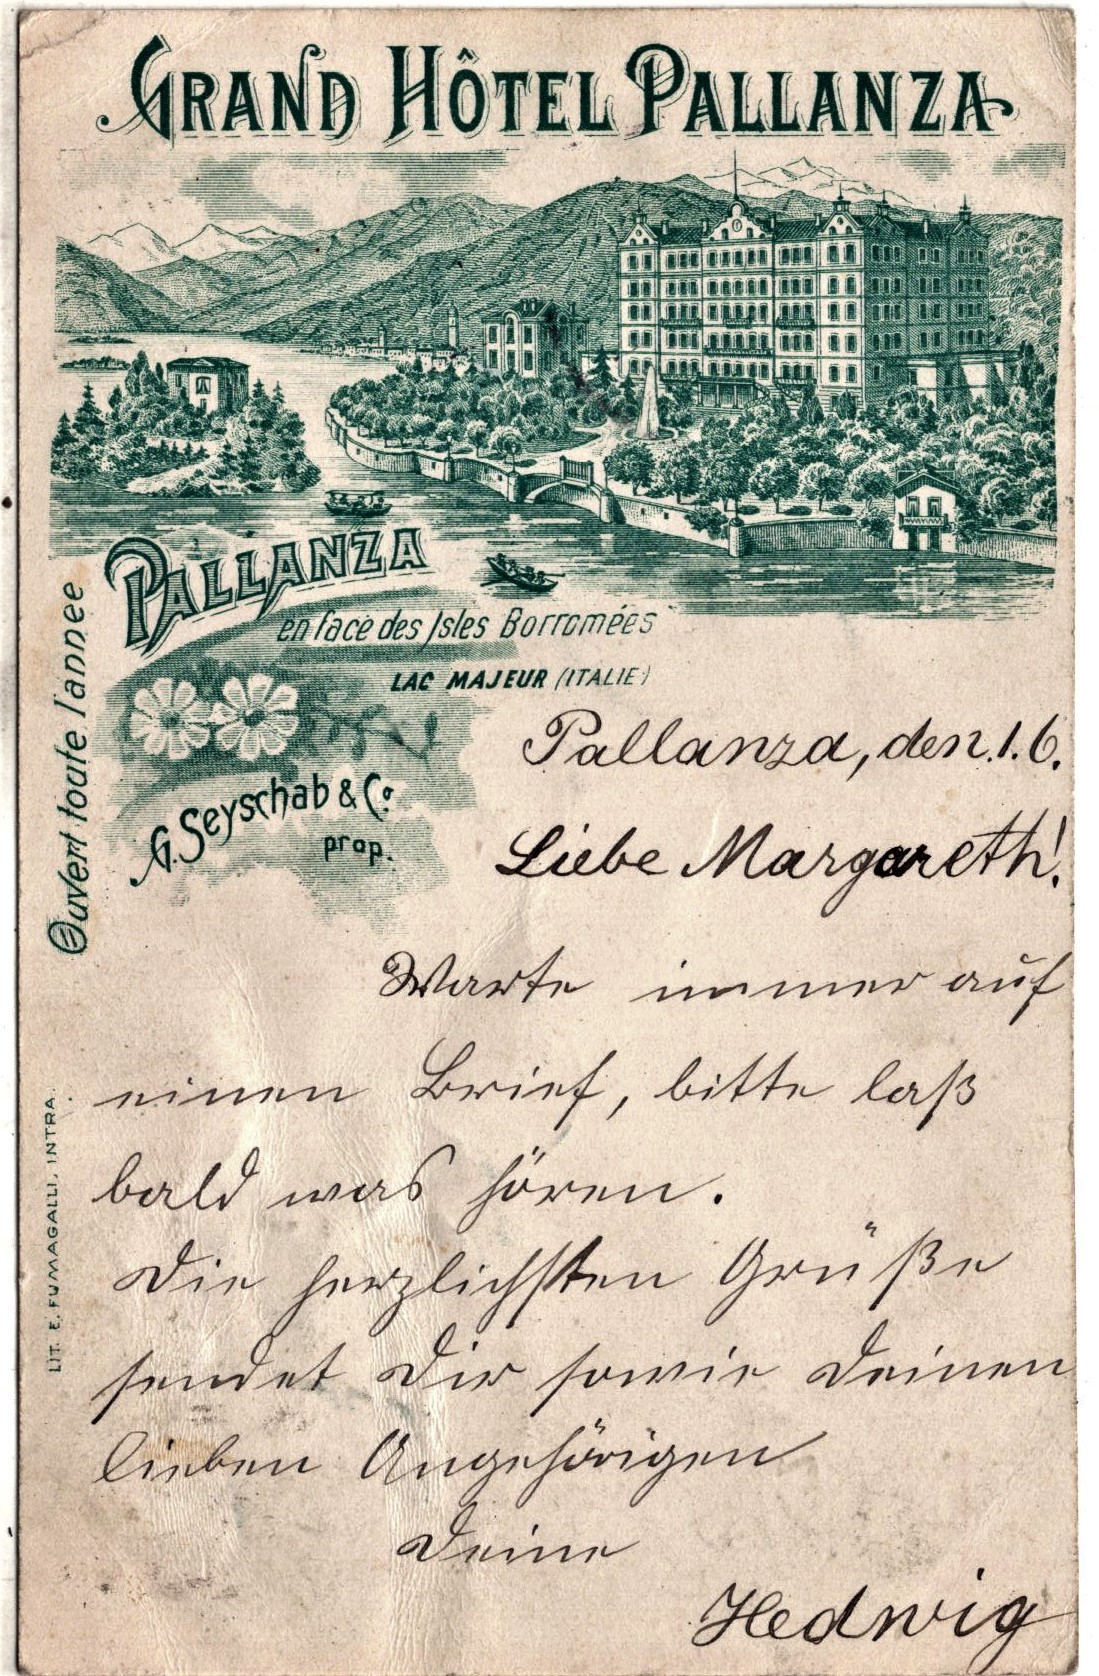 GRAND HÔTEL PALLANZA
PALLANZA
en face des Isles Borromées
LAC MAJEUR (ITALIE)
Ouvert toute l'annee
G. Seyschab & Co.
prop.
LIT. E. FUMAGALLI, INTRA.
Pallanza, den 1. 6.
Liebe Margareth!
Warte immer auf
einen Brief, bitte laß
bald was hören.
Die herzlichsten Grüße
sendet Dir sowie Deinen
lieben Angehörigen
Deine
Hedwig